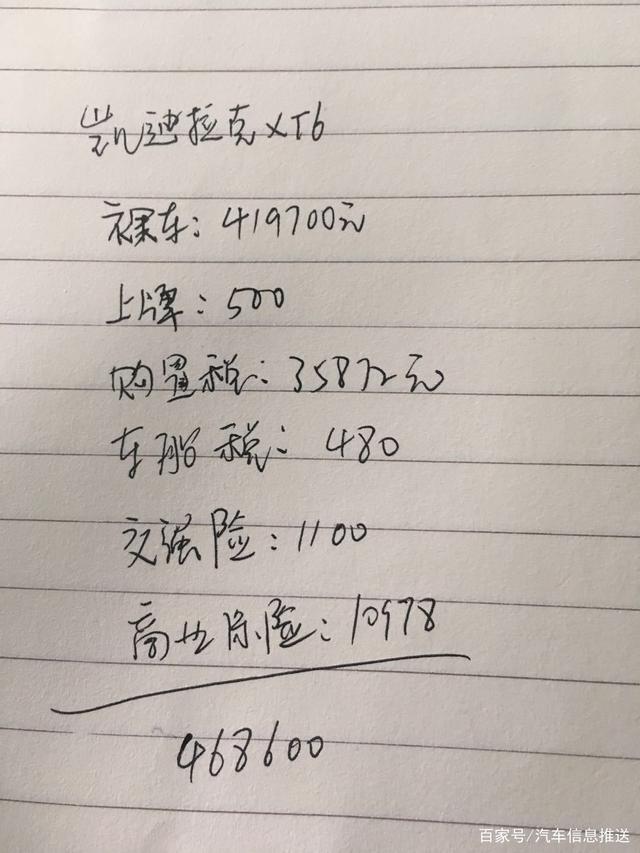 凯迪拉克XT6
裸车：419700元
上牌：500
购置税：35872元
车船税：480
交强险：1100
商业保险：10978
468600
百家号/汽车信息推送